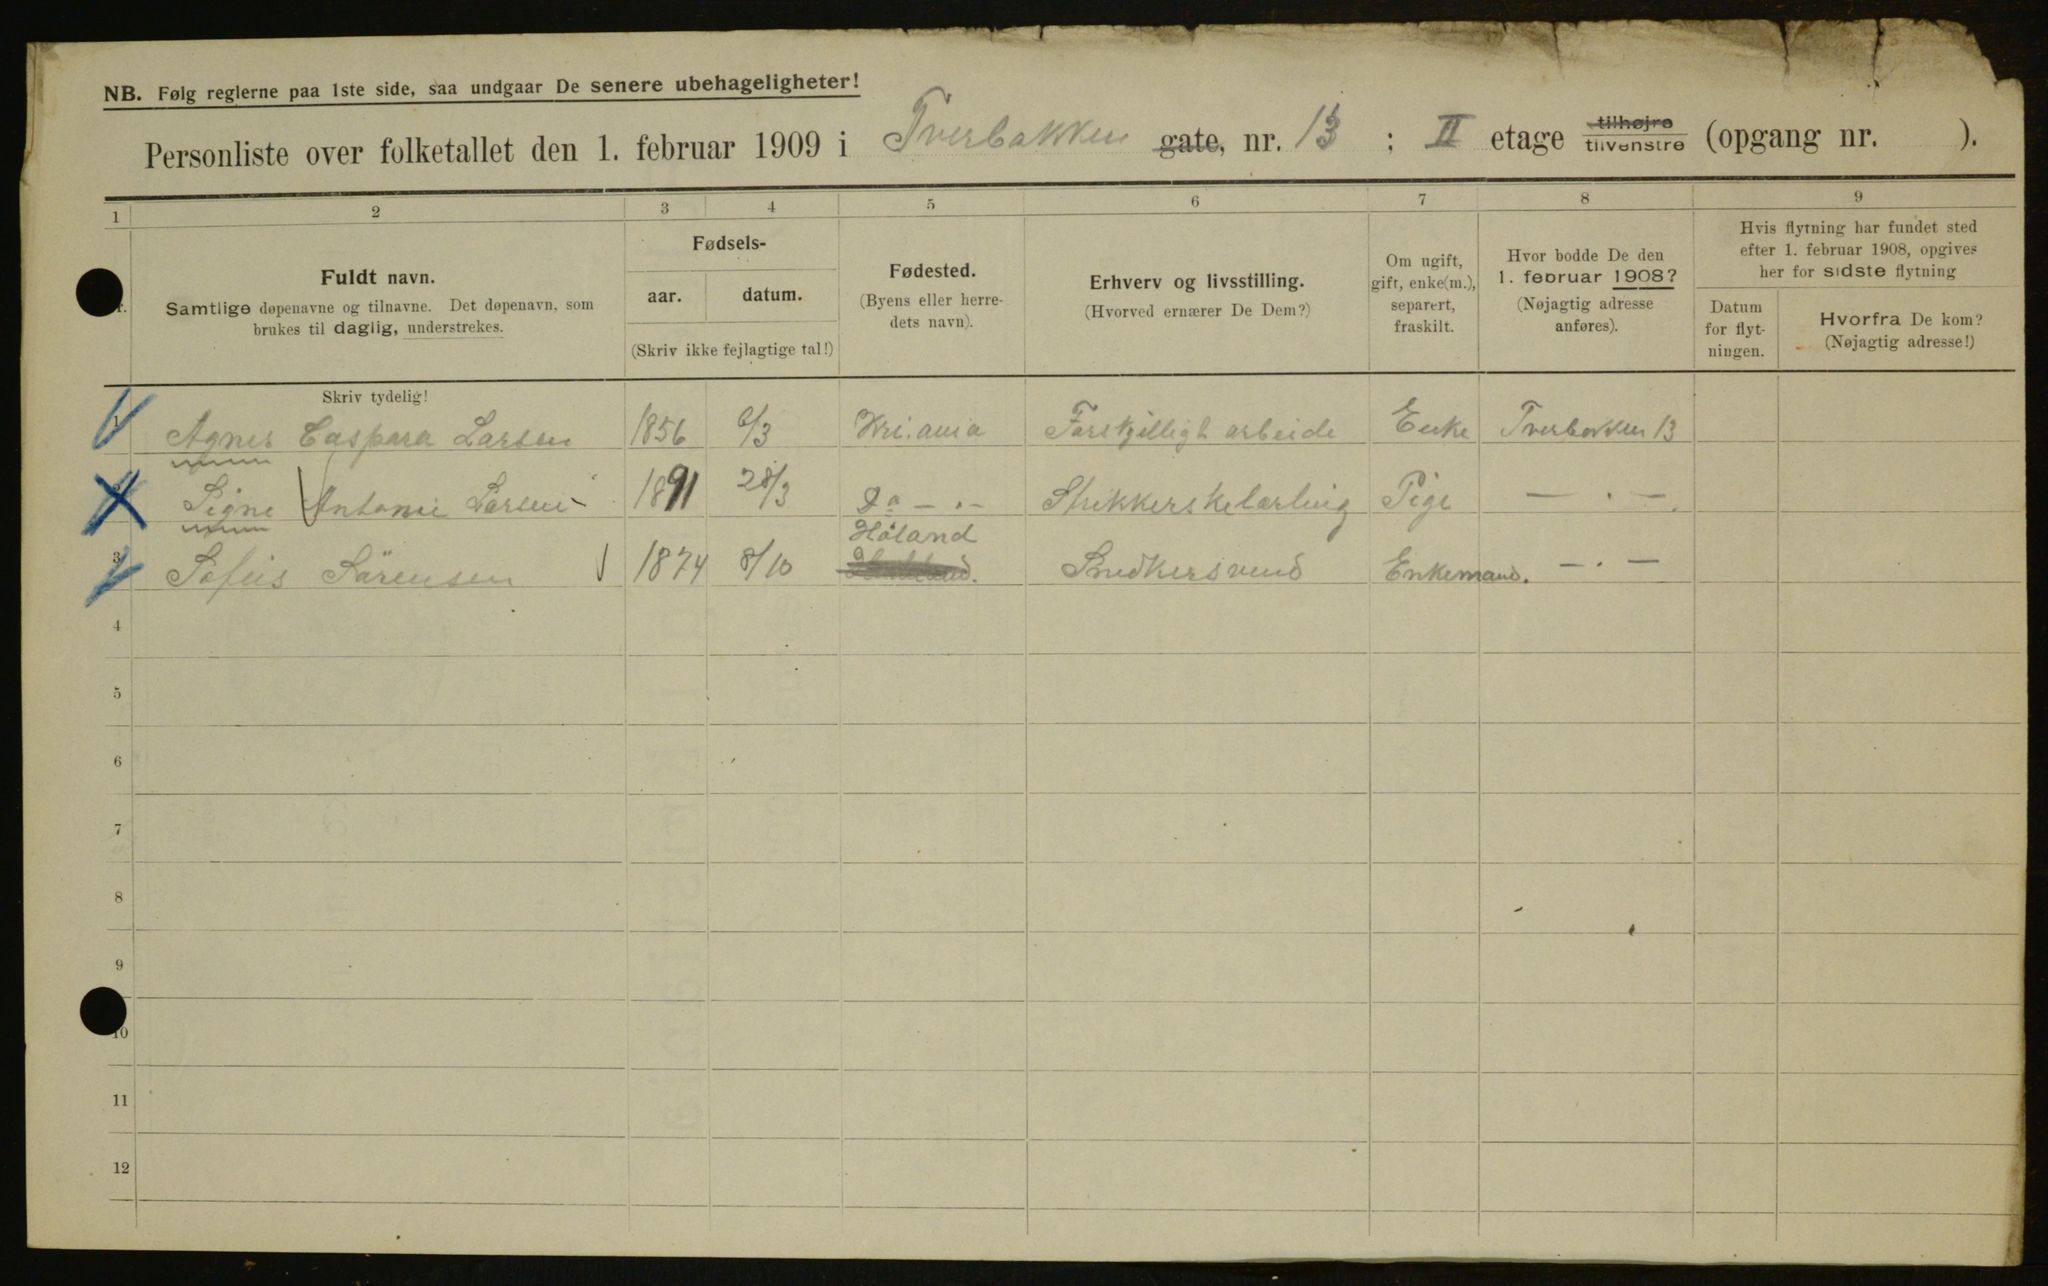 NB. Følg reglerne paa 1ste side, saa undgaar De senere ubehageligheter!
Personliste over folketallet den 1. februar 1909 i Tverbakken gate, nr. 13 ; II etage tilhøjre tilvenstre (opgang nr. ).
1 2 3 4 5 6 7 8 9
Fuldt navn.
Samtlige døpenavne og tilnavne. Det døpenavn, som
brukes til daglig, understrekes.
Fødsels-
aar. datum.
(Skriv ikke fejlagtige tal!)
Fødested.
(Byens eller herre-
dets navn).
Erhverv og livsstilling.
(Hvorved ernærer De Dem?)
Om ugift,
gift, enke(m.),
separert,
fraskilt.
Hvor bodde De den
1. februar 1908?
(Nøjagtig adresse
anføres).
Hvis flytning har fundet sted
efter 1. februar 1908, opgives
her for sidste flytning
Datum
for flyt-
ningen.
Hvorfra De kom?
(Nøjagtig adresse!)
Skriv tydelig!
1 Agnes Caspara Larsen 1856 6/3 Kri.ania Forskjelligt arbeide Enke Tverbakken 13
2 Signe Antonie Larsen 1891 28/3 Do — . — Strikkerskelærling Pige — . —
3 Sofus Sörensen 1874 8/10 Höland Snedkersvend Enkemand. — . —
4
5
6
7
8
9
10
11
12